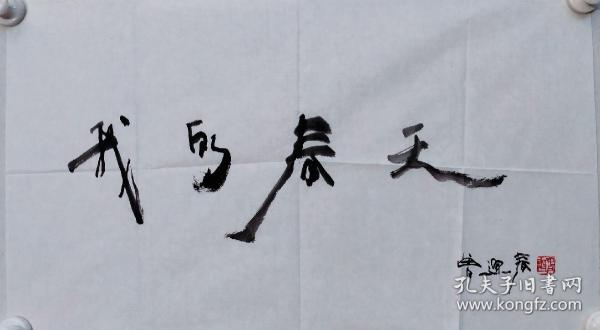 我的春天
曾迎春
孔夫子旧书网
www.kongfz.com